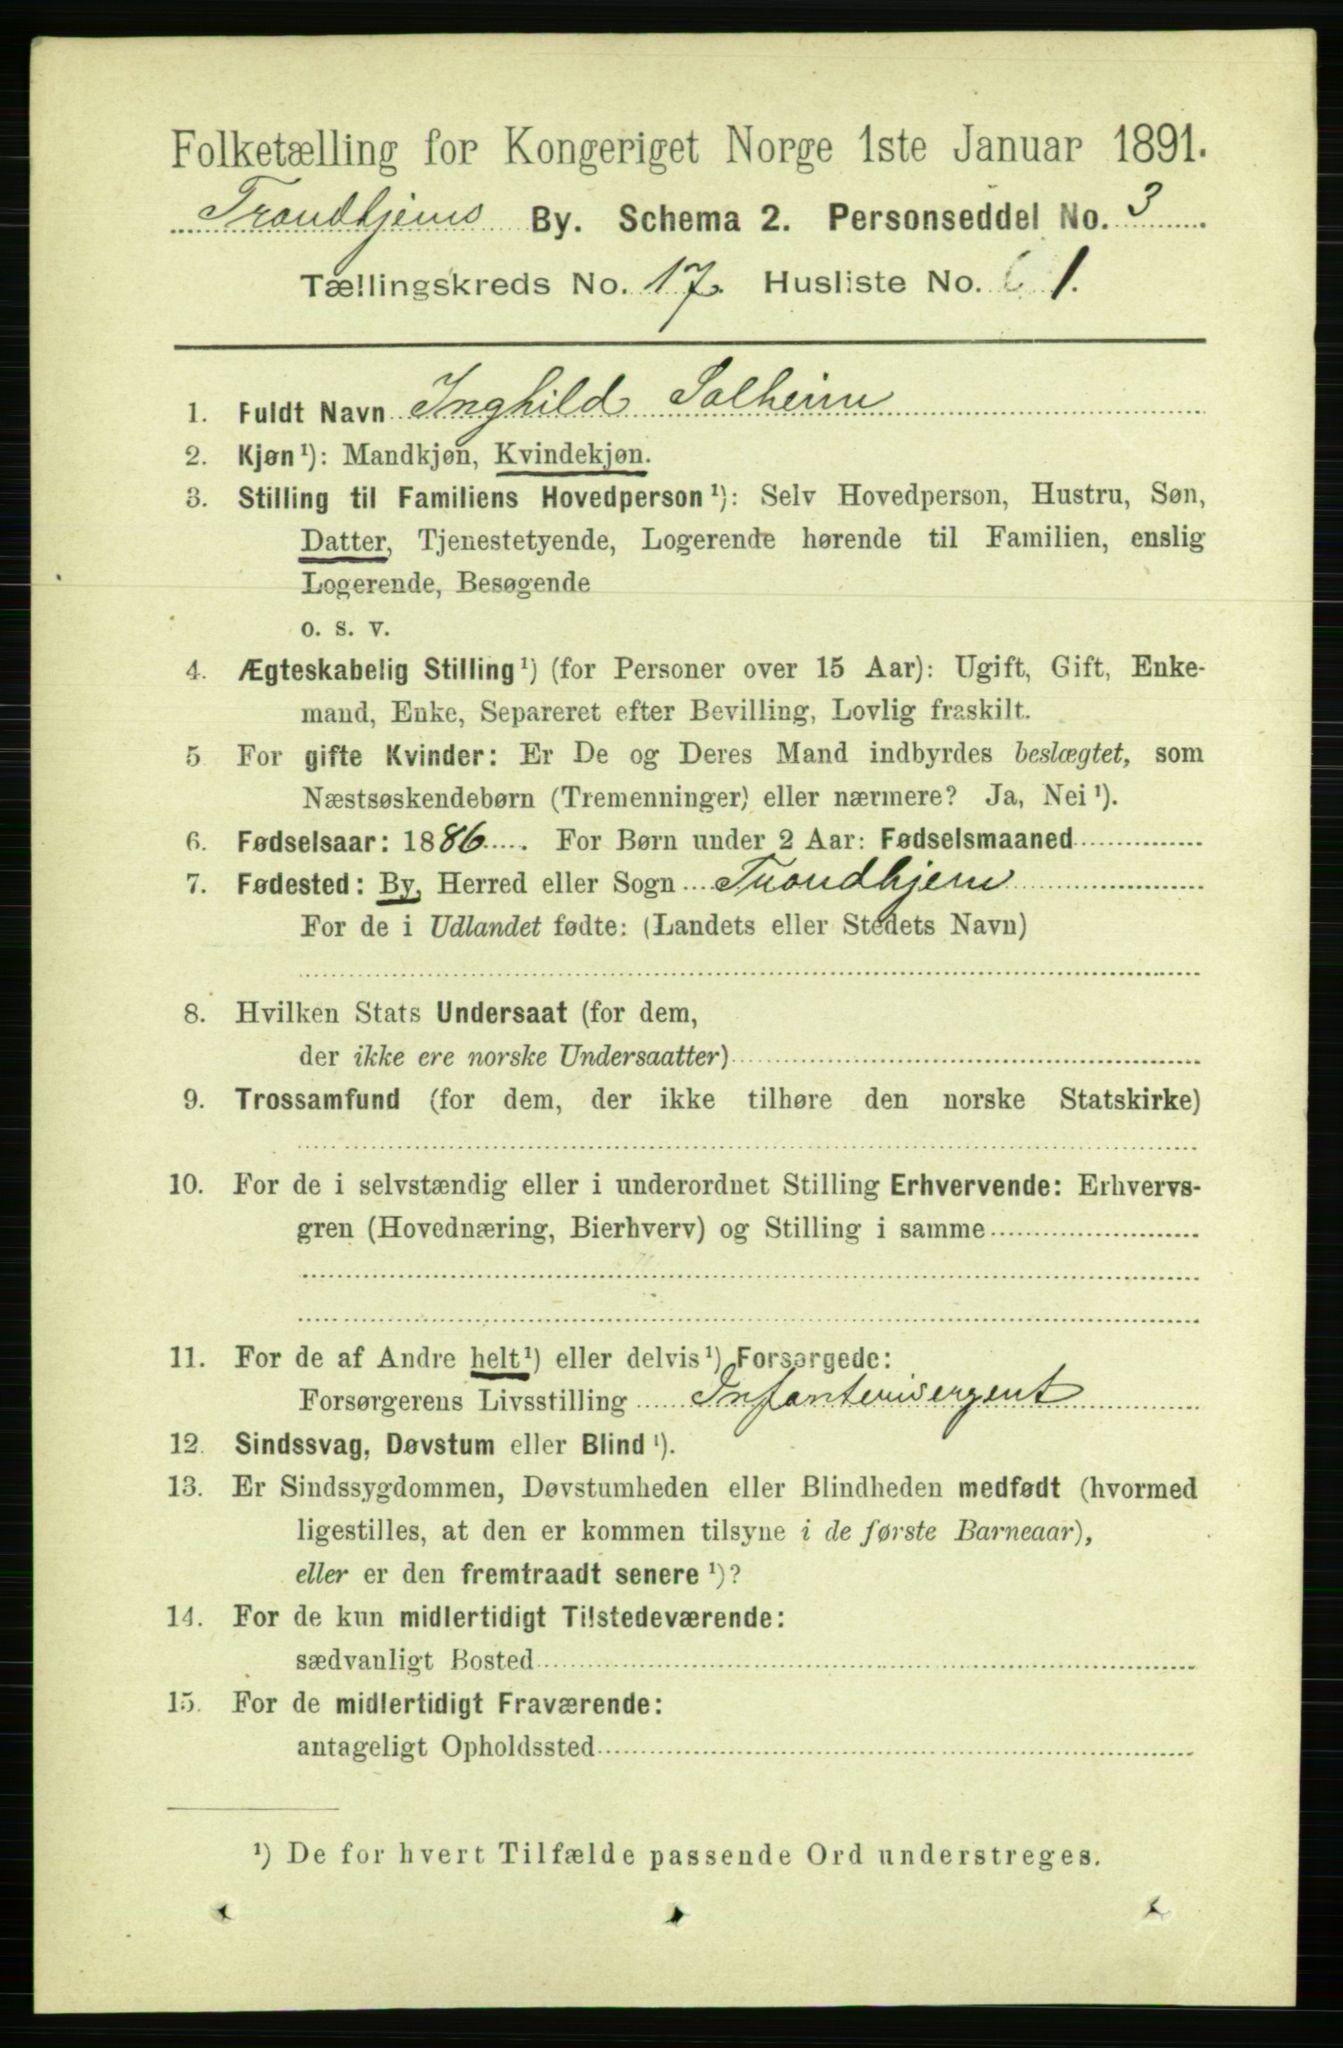 Folketælling for Kongeriget Norge 1ste Januar 1891.
Trondhjems By. Schema 2. Personseddel No. 3
Tællingskreds No. 17. Husliste No. 1.
1. Fuldt Navn Inghild Solheim
2. Kjøn¹): Mandkjøn, Kvindekjøn.
3. Stilling til Familiens Hovedperson¹): Selv Hovedperson, Hustru, Søn,
Datter, Tjenestetyende, Logerende hørende til Familien, enslig
Logerende, Besøgende
o. s. v.
4. Ægteskabelig Stilling¹) (for Personer over 15 Aar): Ugift, Gift, Enke-
mand, Enke, Separeret efter Bevilling, Lovlig fraskilt.
5 For gifte Kvinder: Er De og Deres Mand indbyrdes beslægtet, som
Næstsøskendebørn (Tremenninger) eller nærmere? Ja, Nei¹).
6. Fødselsaar: 1886. For Børn under 2 Aar: Fødselsmaaned
7. Fødested: By, Herred eller Sogn Trondhjem
For de i Udlandet fødte: (Landets eller Stedets Navn)
8. Hvilken Stats Undersaat (for dem,
der ikke ere norske Undersaatter)
9. Trossamfund (for dem, der ikke tilhøre den norske Statskirke)
10. For de i selvstændig eller i underordnet Stilling Erhvervende: Erhvervs-
gren (Hovednæring, Bierhverv) og Stilling i samme
11. For de af Andre helt¹) eller delvis¹) Forsørgede:
Forsørgerens Livsstilling Infanterisergent
12. Sindssvag, Døvstum eller Blind¹).
13. Er Sindssygdommen, Døvstumheden eller Blindheden medfødt (hvormed
ligestilles, at den er kommen tilsyne i de første Barneaar),
eller er den fremtraadt senere¹)?
14. For de kun midlertidigt Tilstedeværende:
sædvanligt Bosted
15. For de midlertidigt Fraværende:
antageligt Opholdssted
¹) De for hvert Tilfælde passende Ord understreges.